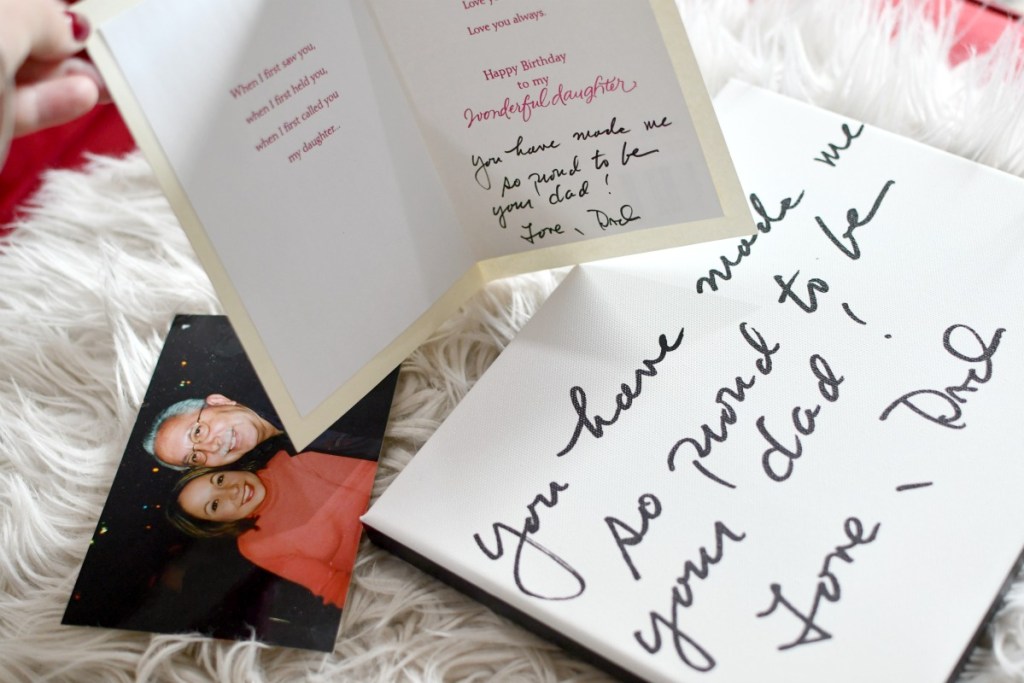 When I first saw you,
when I first held you,
when I first called you
my daughter...
Love you
Love you always.
Happy Birthday
to my
Wonderful daughter
You have made me
so proud to be
your dad!
Love, Dad
You have made me
so proud to be
your dad!
Love, Dad